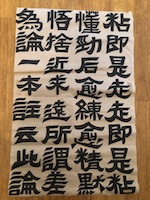 粘即是走走即是粘
懂勁后愈練愈精默
悟捨近求遠所謂差
為論一本註云此論